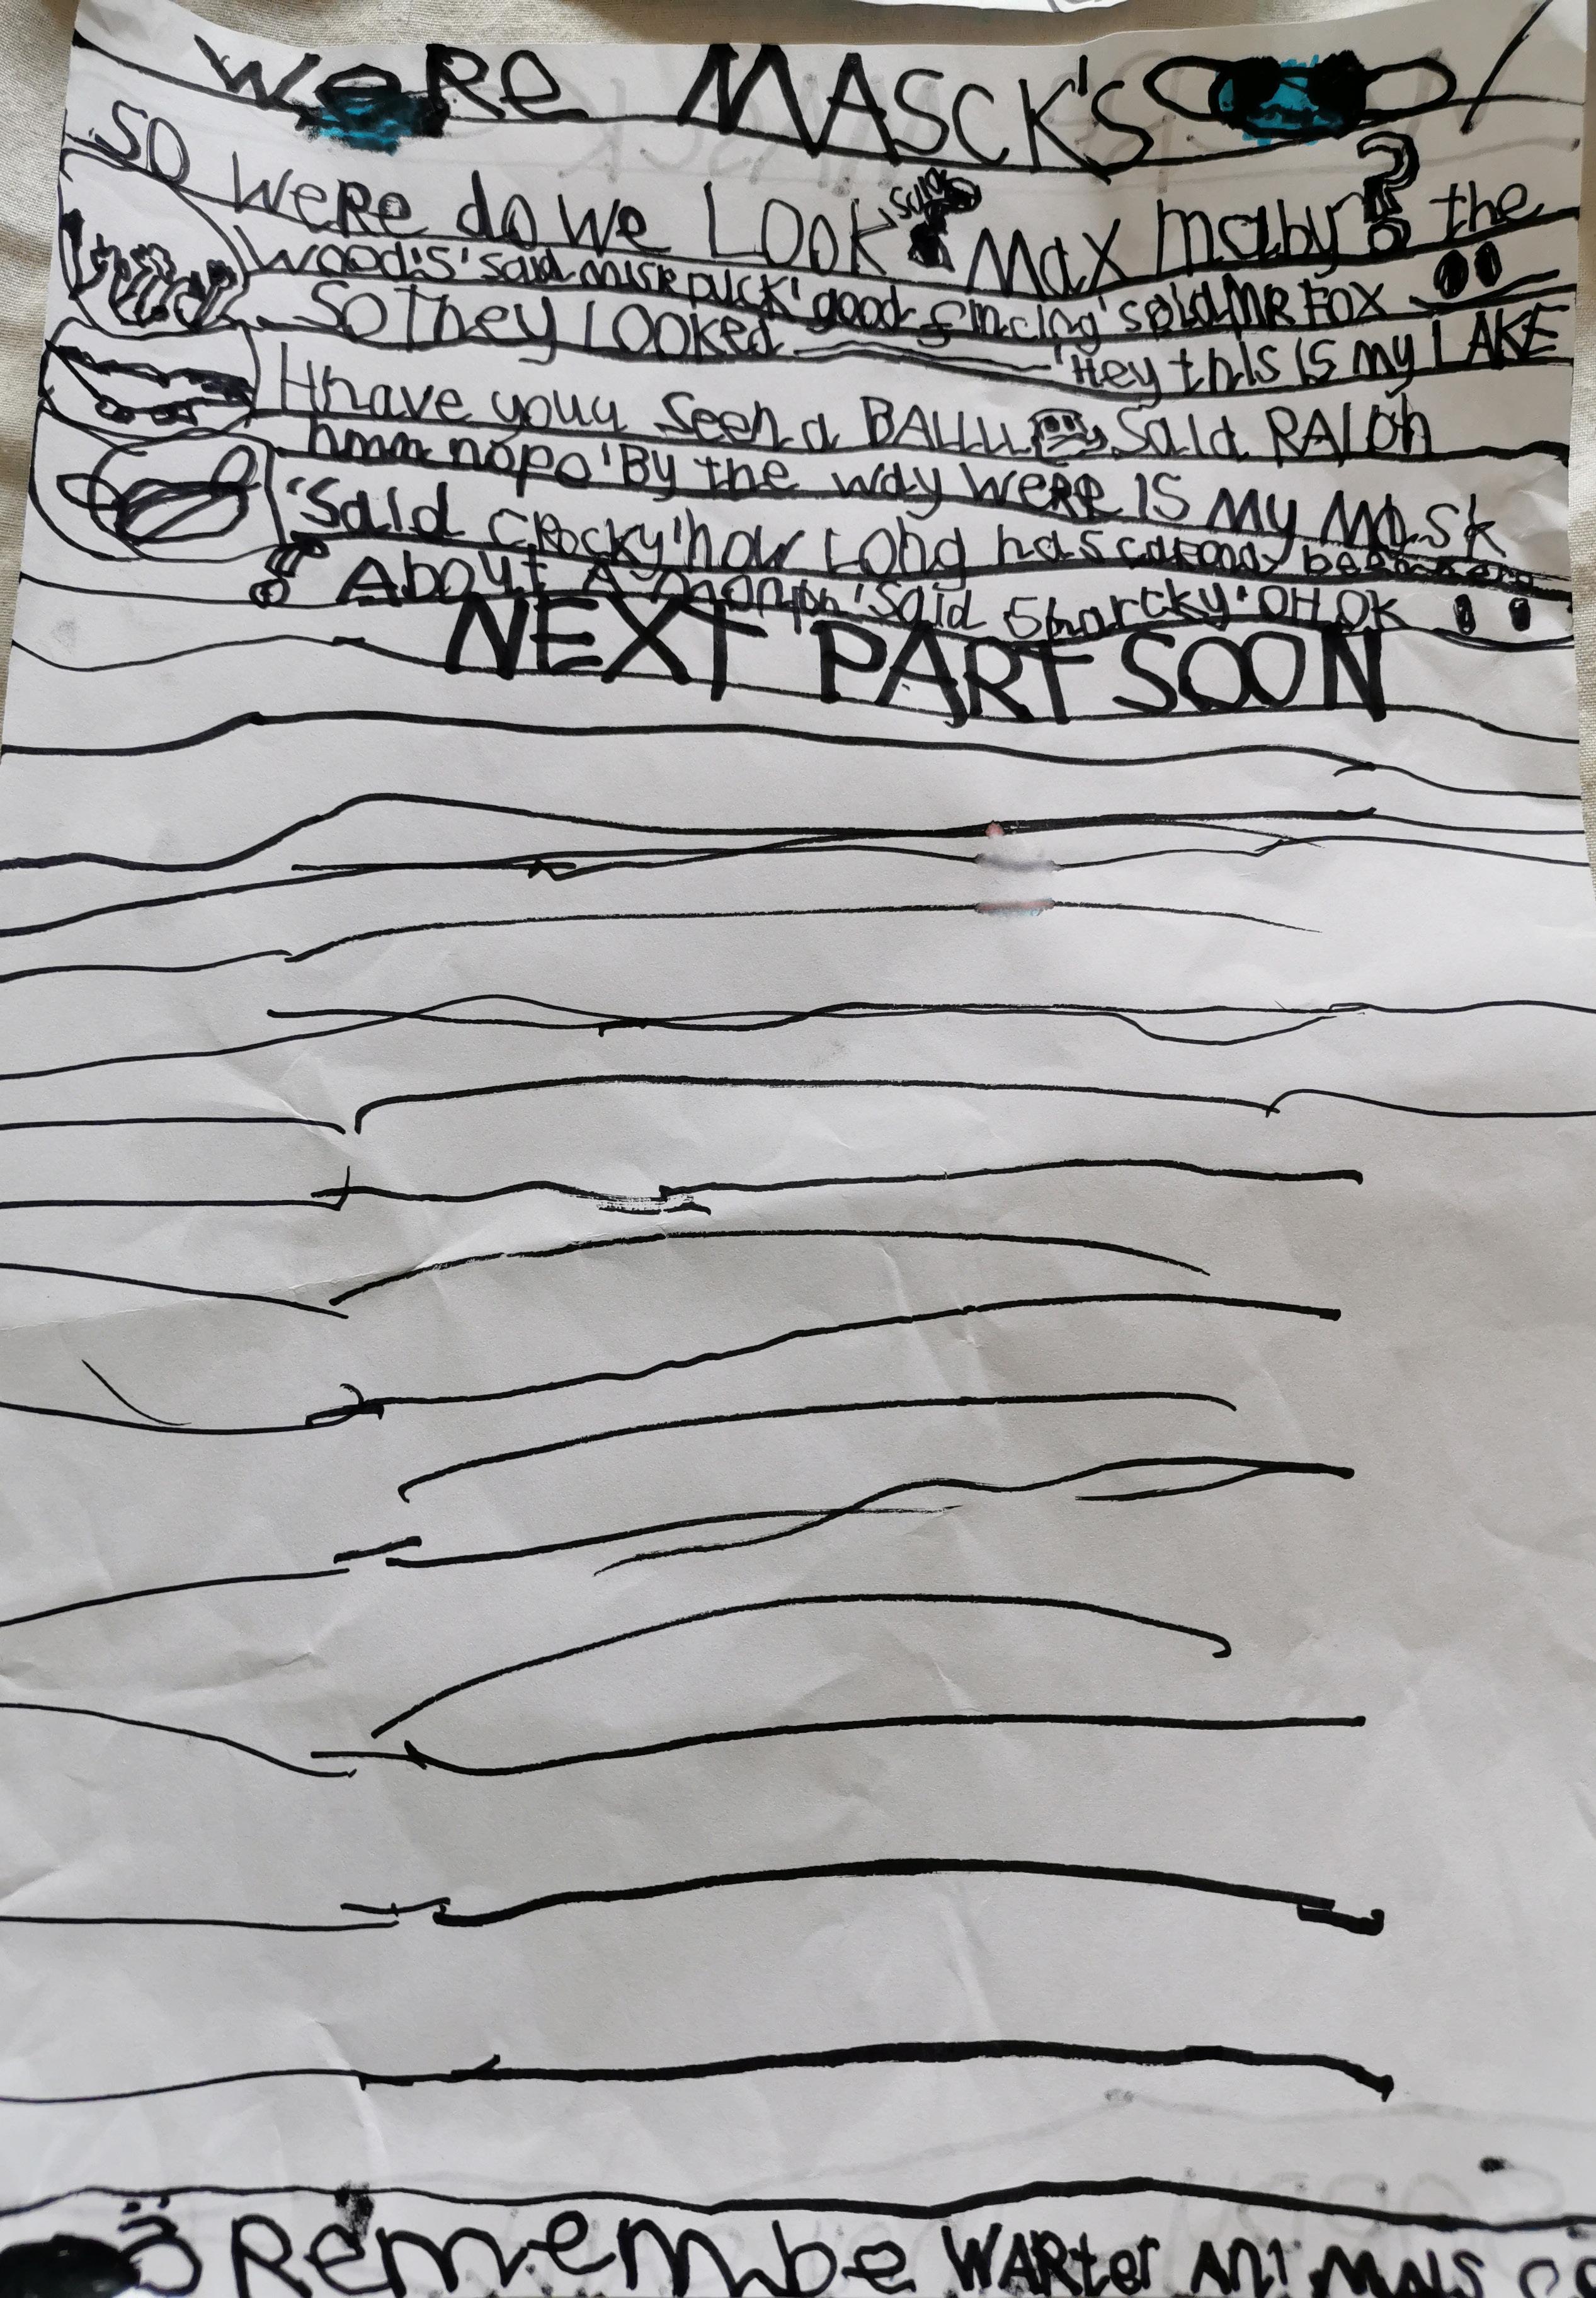 WeRe MASCK'S
SO WeRe do we LOOK said Max maby? the
Wood's' said misr puck' good fincing' said MR FOX
So They LOOked 'Hey this is my LAKE
Hhave youu seen a BALLLL said RALph
hmm nopo' By the way weRe is my MASk
'Said CRocky' how Long has
About A monph' Said Sharcky' OH OK
NEXT PART SOON
Remembe WARter ANiMALS